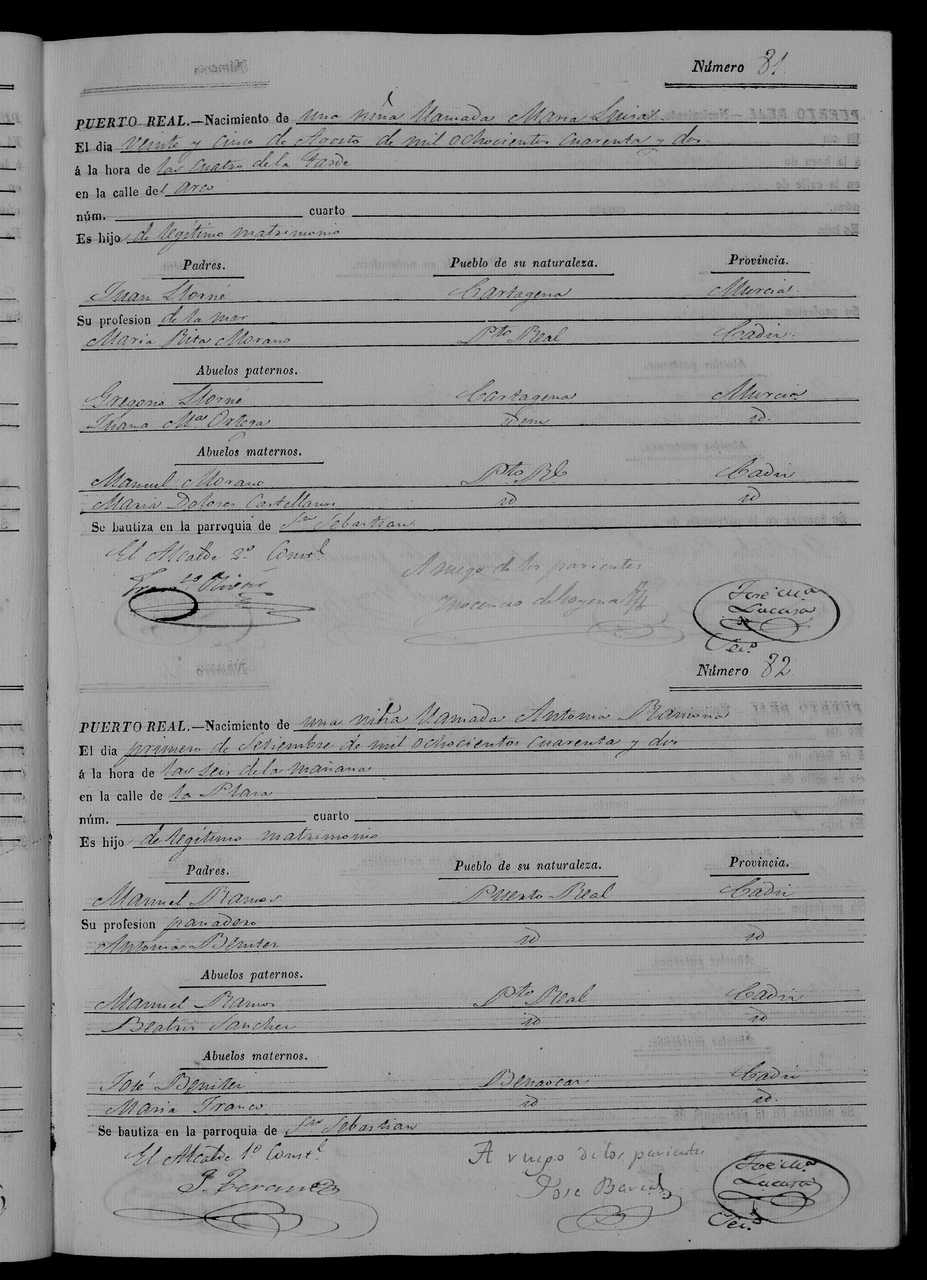 Número 81
PUERTO REAL.—Nacimiento de una niña llamada Maria Luisa
El dia veinte y cinco de Agosto de mil ochocientos cuarenta y dos
á la hora de las cuatro de la tarde
en la calle del Arco
núm. cuarto
Es hijo de legitimo matrimonio
Padres. Pueblo de su naturaleza. Provincia.
Juan Cartagena Murcia
Su profesion de la mar
Maria Rita Morano Pto Real Cadiz
Abuelos paternos.
Gregorio Cartagena Murcia
Juana Mª Ortega Idem id.
Abuelos maternos.
Manuel Morano Pto Rl Cadiz
Maria Dolores Castellanos id id
Se bautiza en la parroquia de Sn Sebastian
El Alcalde 2º Consl
A ruego de los parientes
Franco
Inocencio
José Mª
Lucasa
Serio
Número 82
PUERTO REAL.—Nacimiento de una niña llamada Antonia Ramona
El dia primero de Setiembre de mil ochocientos cuarenta y dos
á la hora de las seis de la mañana
en la calle de la Plaza
núm. cuarto
Es hijo de legitimo matrimonio
Padres. Pueblo de su naturaleza. Provincia.
Manuel Ramos Puerto Real Cadiz
Su profesion panadero
Antonia Benitez id id
Abuelos paternos.
Manuel Ramos Pto Real Cadiz
Beatriz Sanchez id id
Abuelos maternos.
José Benitez Benaocaz Cadiz
Maria Franco id id.
Se bautiza en la parroquia de Sn Sebastian
El Alcalde 1º Consl
A ruego de los parientes
José
José Mª
Lucasa
Serio